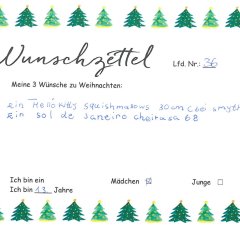 Wunschzettel
Lfd. Nr.: 36
Meine 3 Wünsche zu Weihnachten:
ein Hello Kitty squishmallows 30cm (bei smyth
ein sol de Janeiro cheirosa 68
Ich bin ein Mädchen ☒ Junge ☐
Ich bin 13 Jahre